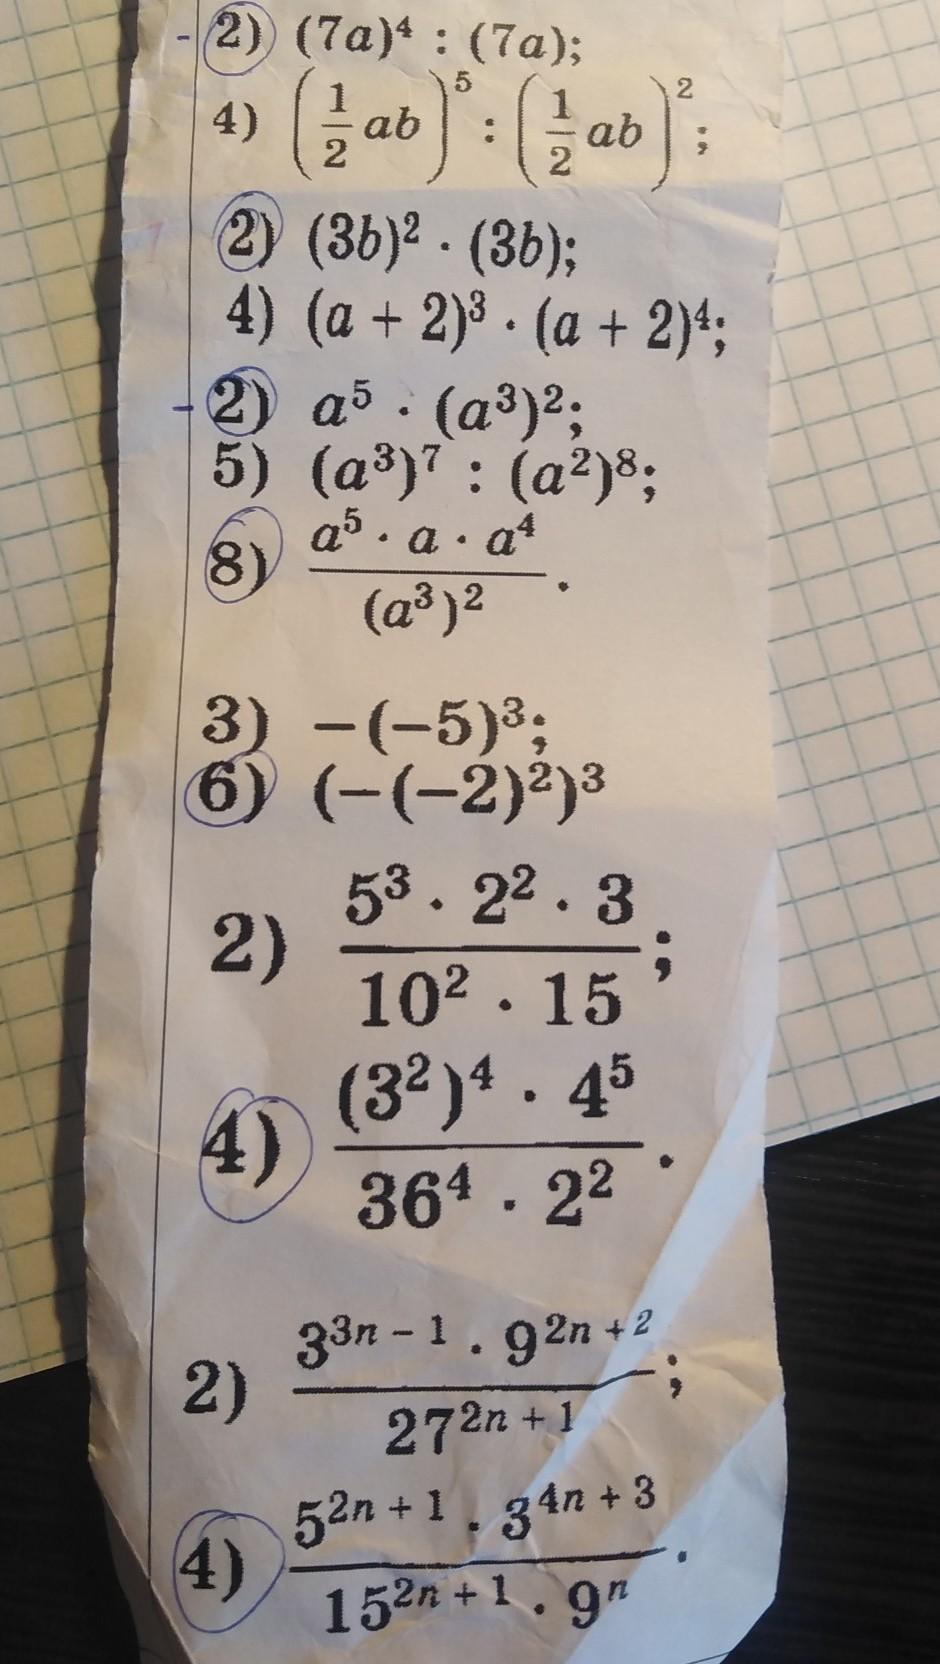 2) (7a)⁴ : (7a);
4) (1/2 ab)⁵ : (1/2 ab)²;
2) (3b)² · (3b);
4) (a + 2)³ · (a + 2)⁴;
2) a⁵ · (a³)²;
5) (a³)⁷ : (a²)⁸;
8) (a⁵ · a · a⁴)/((a³)²).
3) −(−5)³;
6) (−(−2)²)³
2) (5³ · 2² · 3)/(10² · 15);
4) ((3²)⁴ · 4⁵)/(36⁴ · 2²).
2) (3³ⁿ⁻¹ · 9²ⁿ⁺²)/(27²ⁿ⁺¹);
4) (5²ⁿ⁺¹ · 3⁴ⁿ⁺³)/(15²ⁿ⁺¹ · 9ⁿ).